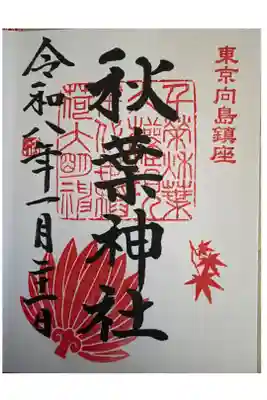 東京向島鎮座
秋葉神社
令和八年一月二十一日